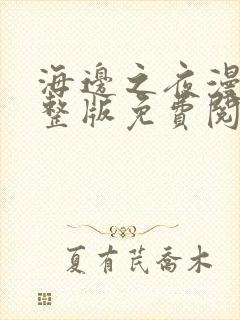 海邊之夜漫
整版免費閱
夏有芪喬木